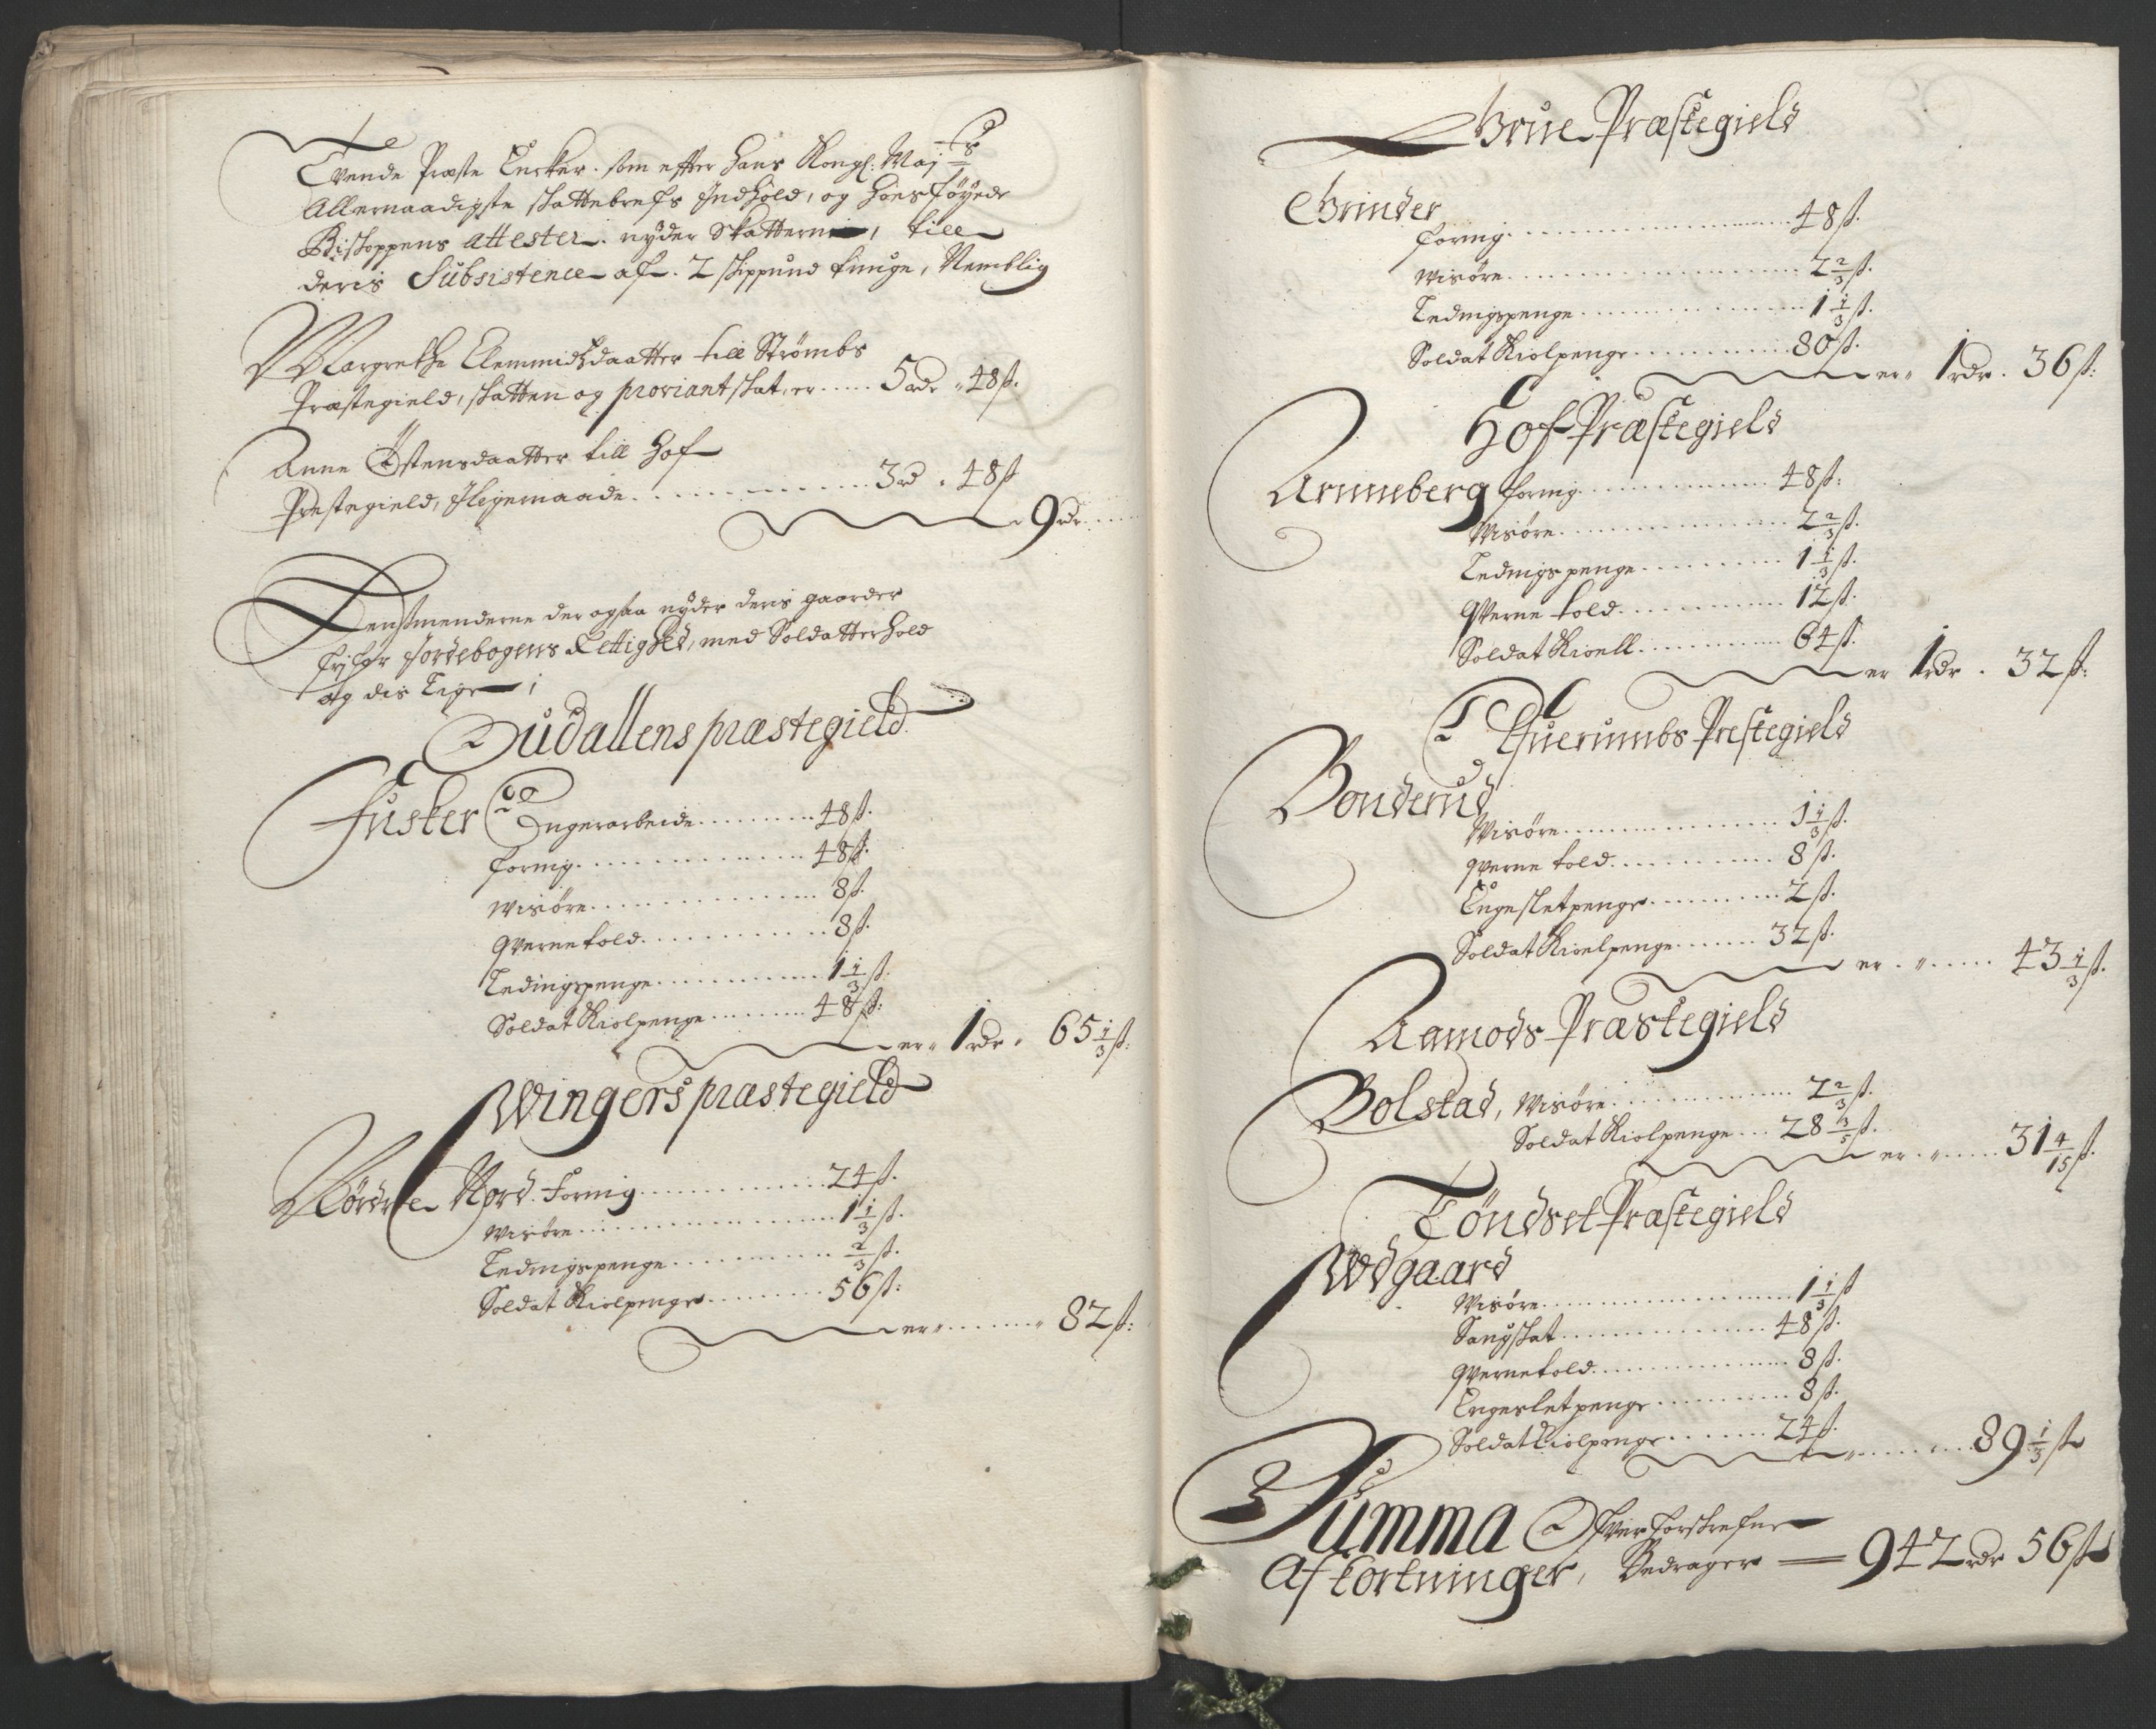 Tvende Præste Encker. som efter hans Kongl: Maj ts
Allernaadigste skattebrefs Indhold, og hoesføyede
Bischoppens Attester. nyder Skatterne, till
deris Subsistence af. 2 skippund tunge, Nemblig
Margrethe Clemmidsdaatter till Strømbs
Præstegield, skatten og proviantskat, er ..... 5 rdr " 48 ß.
Anne Østensdaatter till Hof
Prestegield, Ligemaade ............ 3 rd " 48 ß
9 rdr ....
Lensmenderne der ogsaa nyder deris gaarder
fri for Jordebogens Rettighed, med Soldatterhold
og des Lige i
Sudallens præstegield
Fusker Ingerarbeide .......... 48 ß.
Foring ............... 48 ß.
Wisøre ............... 8 ß.
Qvernetold ............ 8 ß.
Ledingspenge ........... 1 1/3 ß.
Soldat Kiolpenge ......... 48 ß:
er " 1 rdr " 65 1/3 ß:
Wingers præstegield
Nørdre Nord. Foring ............ 24 ß.
Wisøre ................. 1 1/3 ß.
Ledingspenge .......... 2/3 ß.
Soldat Kiolpenge ......... 56 ß:
er " ........ " 82 ß:
Grue Præstegield
Grinder
Foring .................. 48 ß.
Wisøre .................. 2 2/3 ß.
Ledingspenge ............... 1 1/3 ß.
Soldat Kiolpenge ............ 80 ß.
er " 1 rdr . 36 ß:
Hof Præstegield
Arnneberg Foring ............... 48 ß:
Wisøre ............... 2 2/3 ß.
Ledingspenge .......... 1 1/3 ß.
Qverne told ............ 12 ß.
Soldat Kioell ............ 64 ß.
er 1 rdr . 32 ß:
Elfuerumbs Prestegield
Bonderud
Wisøre ............... 1 1/3 ß.
Qverne told ............ 8 ß.
Engesletpenge .......... 2 ß.
Soldat Kioelpenge ....... 32 ß.
er . " ..... 43 1/3 ß.
Aamods Præstegield
Bolstad, Wisøre ............... 2 2/3 ß.
Soldat Kiolpenge ... 28 3/5 ß.
er . " ..... 31 4/15 ß.
Tøndset Præstegield
Wdgaard
Wisøre ................. 1 1/3 ß
Saugskat ............... 48 ß.
Qvernetold ............... 8 ß.
Engesletpenge .......... 8 ß.
Soldat Kiolpenge ....... 24 ß.
" ....... 89 1/3 ß
Summa Ofver forskrefne
Afkortninger, Bedrager — 942 rdr 56 ß